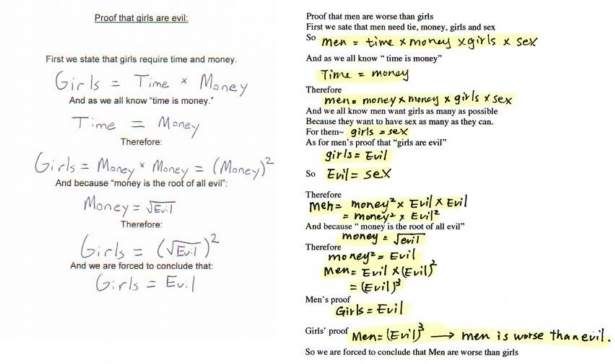 Proof that girls are evil:
First we state that girls require time and money.
Girls = Time × Money
And as we all know "time is money."
Time = Money
Therefore:
Girls = Money × Money = (Money)²
And because "money is the root of all evil":
Money = √Evil
Therefore:
Girls = (√Evil)²
And we are forced to conclude that:
Girls = Evil
Proof that men are worse than girls
First we sate that men need tie, money, girls and sex
So men = time × money × girls × sex
And as we all know "time is money"
Time = money
Therefore
men = money × money × girls × sex
And we all know men want girls as many as possible
Because they want to have sex as many as they can.
For them– girls = sex
As for men's proof that "girls are evil"
girls = Evil
So Evil = sex
Therefore
Men = money² × Evil × Evil
= money² × Evil²
And because "money is the root of all evil"
money = √evil
Therefore
money² = Evil
Men = Evil × (Evil)²
= (Evil)³
Men's proof
Girls = Evil
Girls' proof Men = (Evil)³ → men is worse than evil.
So we are forced to conclude that Men are worse than girls